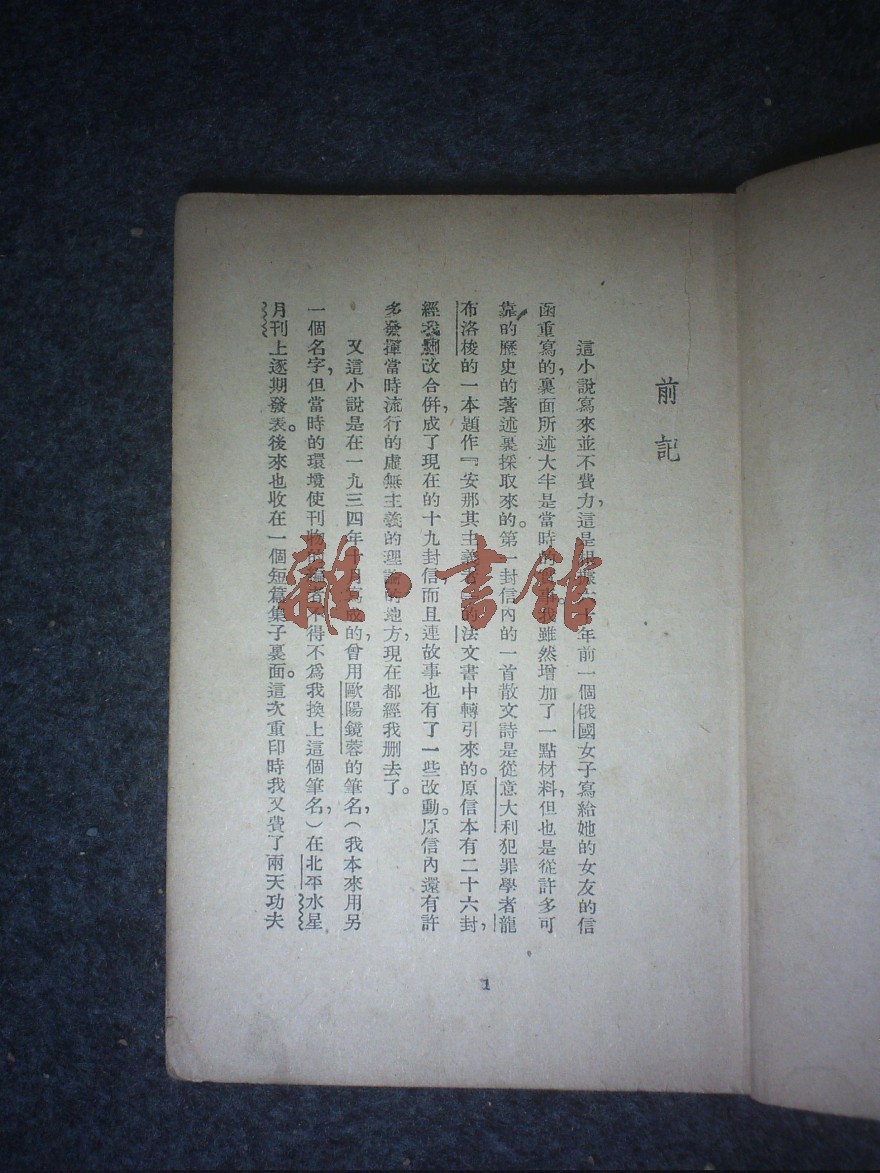 前記
這小說寫來並不費力，這是根據六十年前一個俄國女子寫給她的女友的信
函重寫的，裏面所述大半是當時的我雖然增加了一點材料，但也是從許多可
靠的歷史的著述裏採取來的。第一封信內的一首散文詩是從意大利犯罪學者龍
布洛梭的一本題作『安那其主義者的法文書中轉引來的。原信本有二十六封，
經我刪改合併，成了現在的十九封信而且連故事也有了一些改動。原信內還有許
多發揮當時流行的虛無主義的理論的地方，現在都經我刪去了。
又這小說是在一九三四年十月寫成的，曾用歐陽鏡蓉的筆名，（我本來用另
一個名字，但當時的環境使刊物的編者不得不爲我換上這個筆名，）在北平水星
月刊上逐期發表。後來也收在一個短篇集子裏面。這次重印時我又費了兩天功夫
1
雜·書館